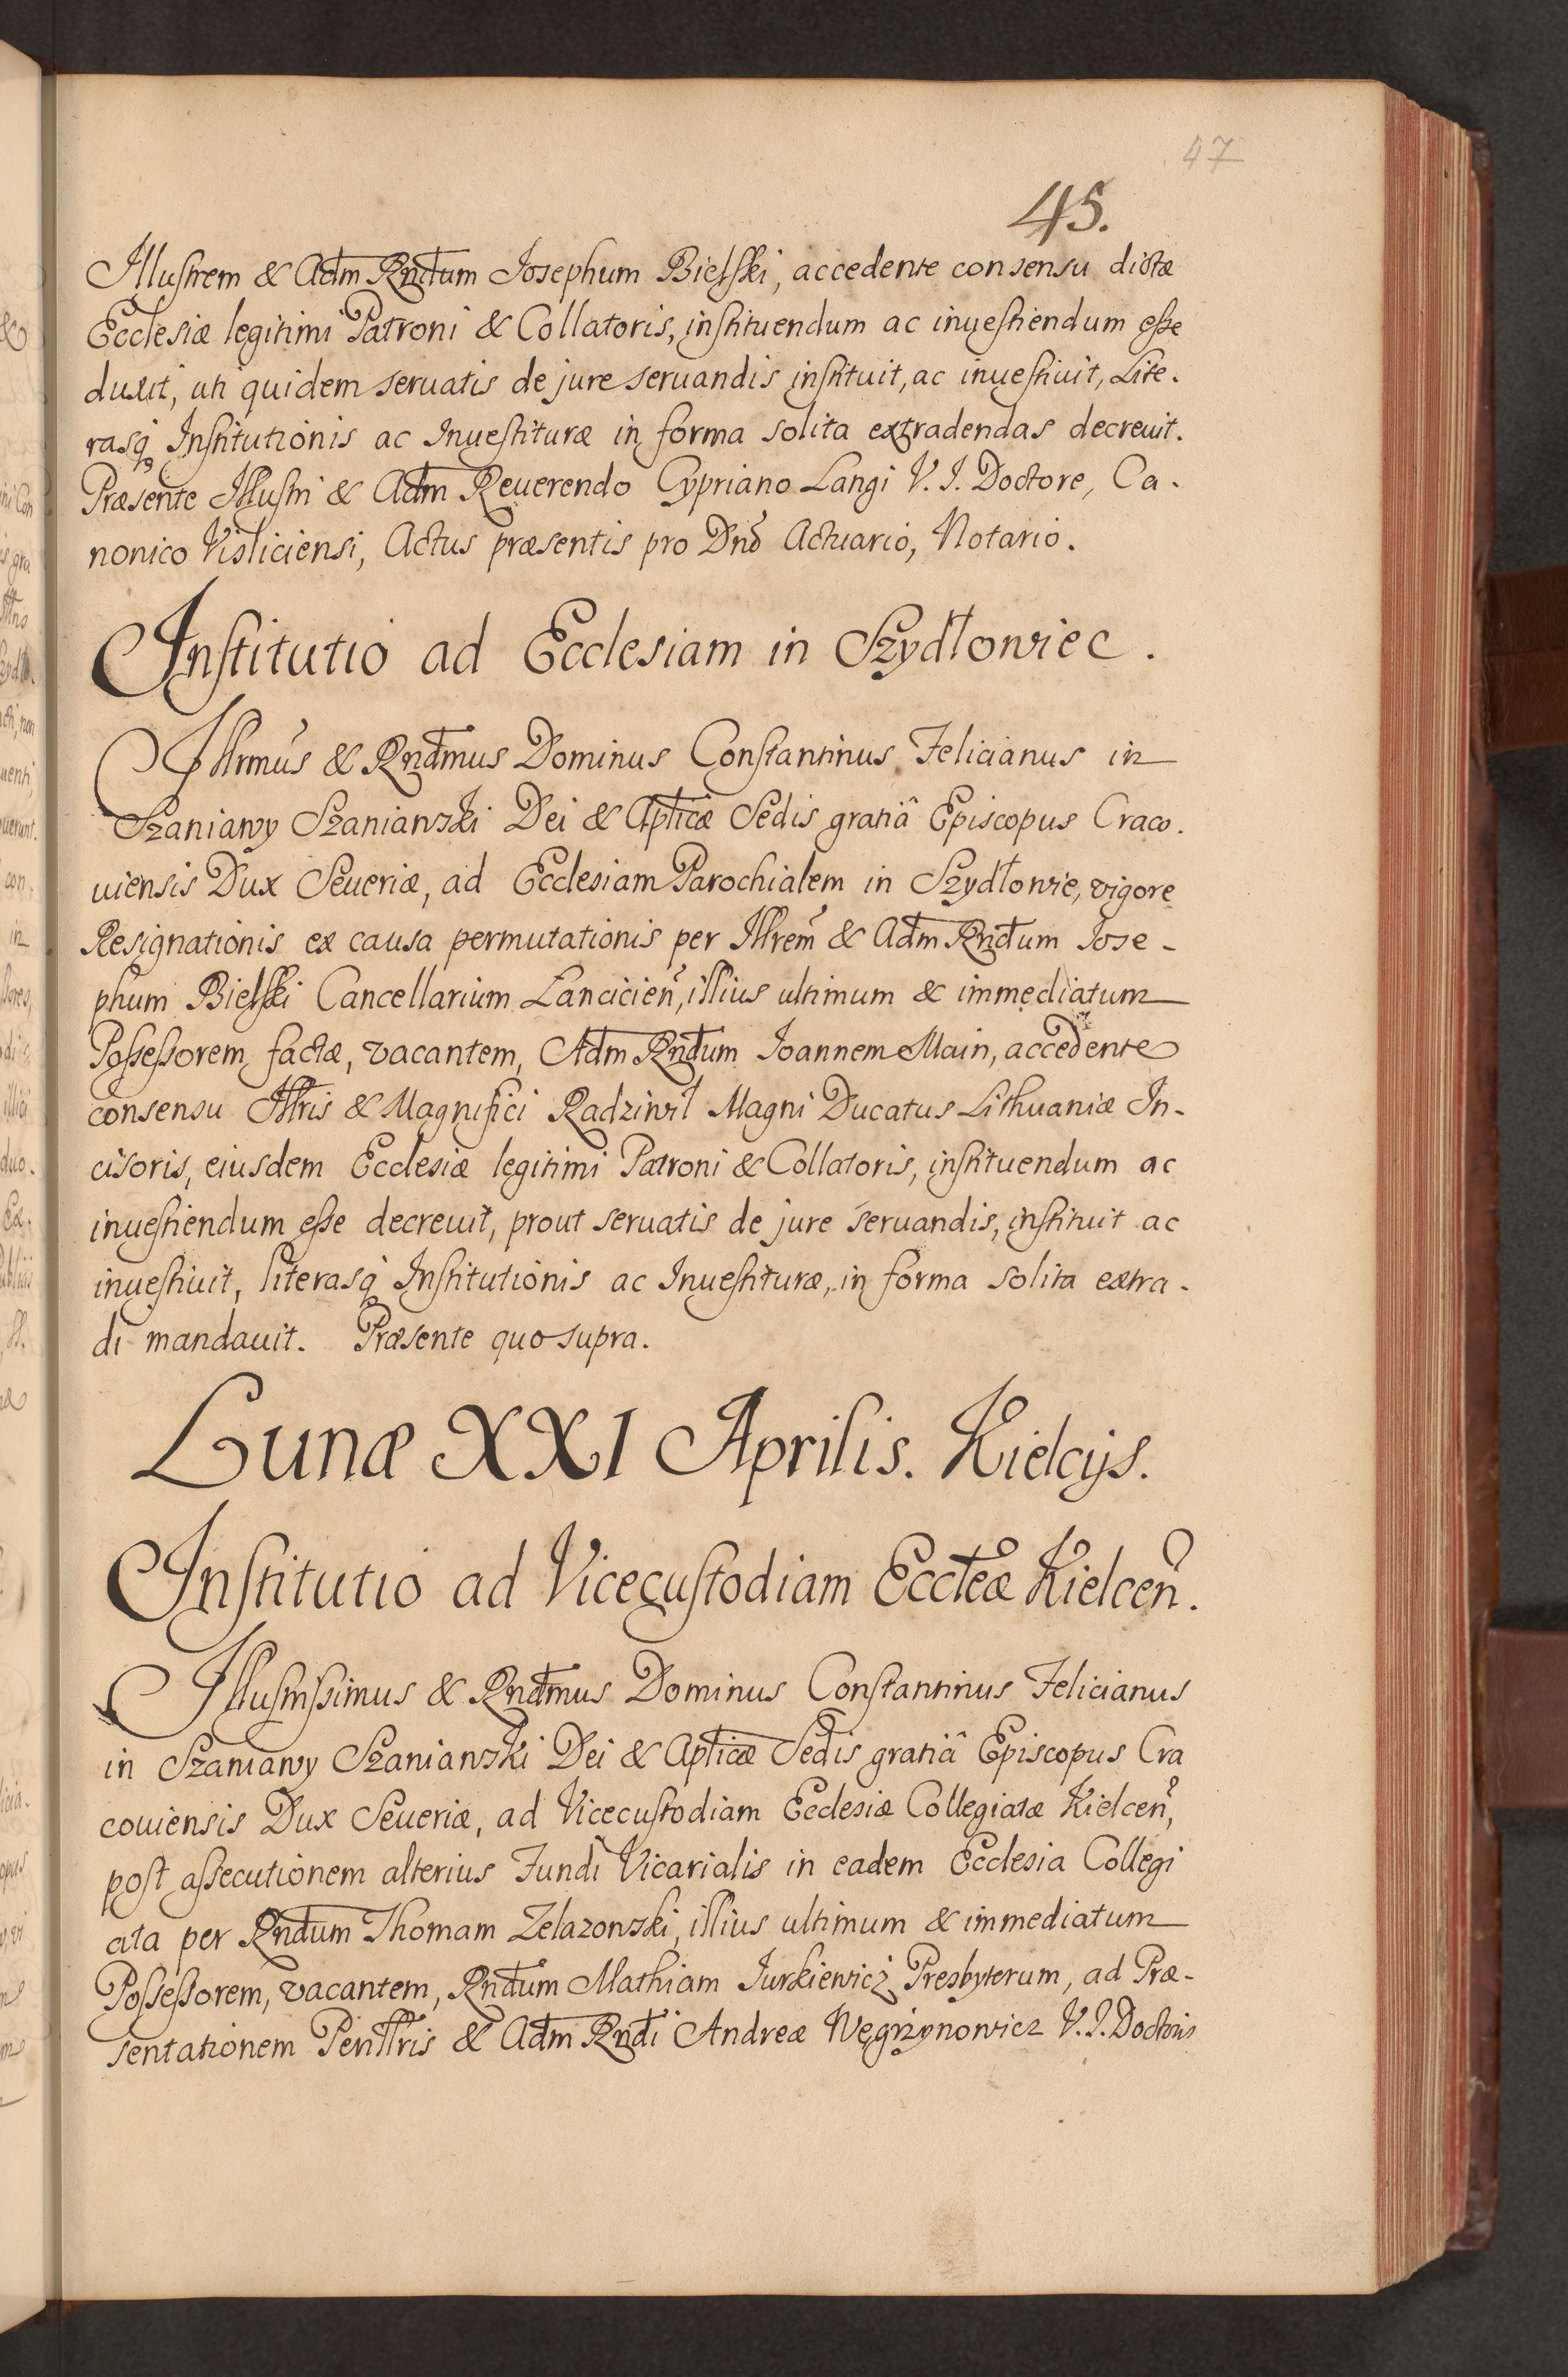 47
45.
Illustrem & Adm Rndum Josephum Bielski, accedente consensu dictæ
Ecclesiæ legitimi Patroni & Collatoris, instituendum ac inuestiendum esse
duxit, uti quidem seruatis de jure seruandis instituit, ac inuestiuit, Lite.
rasq Institutionis ac Inuestituræ in forma solita extradendas decreuit.
Præsente Illustri & Adm Reuerendo Cypriano Langi V. I. Doctore, Ca.
nonico Visliciensi, Actus præsentis pro Dnō Actuario, Notario.
Institutio ad Ecclesiam in Szydłowiec.
Illrmus & Rndmus Dominus Constantinus Felicianus in
Szaniawy Szaniawski Dei & Apticæ Sedis gratiâ Episcopus Craco.
uiensis Dux Seueriæ, ad Ecclesiam Parochialem in Szydłowie, vigore
Resignationis ex causa permutationis per Illrem & Adm Rndum Jose-
phum Bielski Cancellarium Lancicien, illius ultimum & immediatum
Possessorem factæ, vacantem, Adm Rndum Joannem Main, accedente
consensu Illris & Magnifici Radziwił Magni Ducatus Lithuaniæ In-
cisoris, eiusdem Ecclesiæ legitimi Patroni & Collatoris, instituendum ac
inuestiendum esse decreuit, prout seruatis de jure seruandis, instituit ac
inuestiuit, literasq Institutionis ac Inuestituræ, in forma solita extra.
di mandauit. Præsente quo supra.
Lunæ XXI Aprilis. Kielcijs.
Institutio ad Vicecustodiam Eccłeæ Kielcen.
Illustrissimus & Rndmus Dominus Constantinus Felicianus
in Szaniawy Szaniawski Dei & Apticæ Sedis gratiâ Episcopus Cra
couiensis Dux Seueriæ, ad Vicecustodiam Ecclesiæ Collegiatæ Kielcen,
post assecutionem alterius Fundi Vicarialis in eadem Ecclesia Collegi
ata per Rndum Thomam Zelazowski, illius ultimum & immediatum
Possessorem, vacantem, Rndum Mathiam Jurkiewicz Presbyterum, ad Præ-
sentationem Penllris & Adm Rndi Andreæ Węgrzynowicz V. I. Doctoris